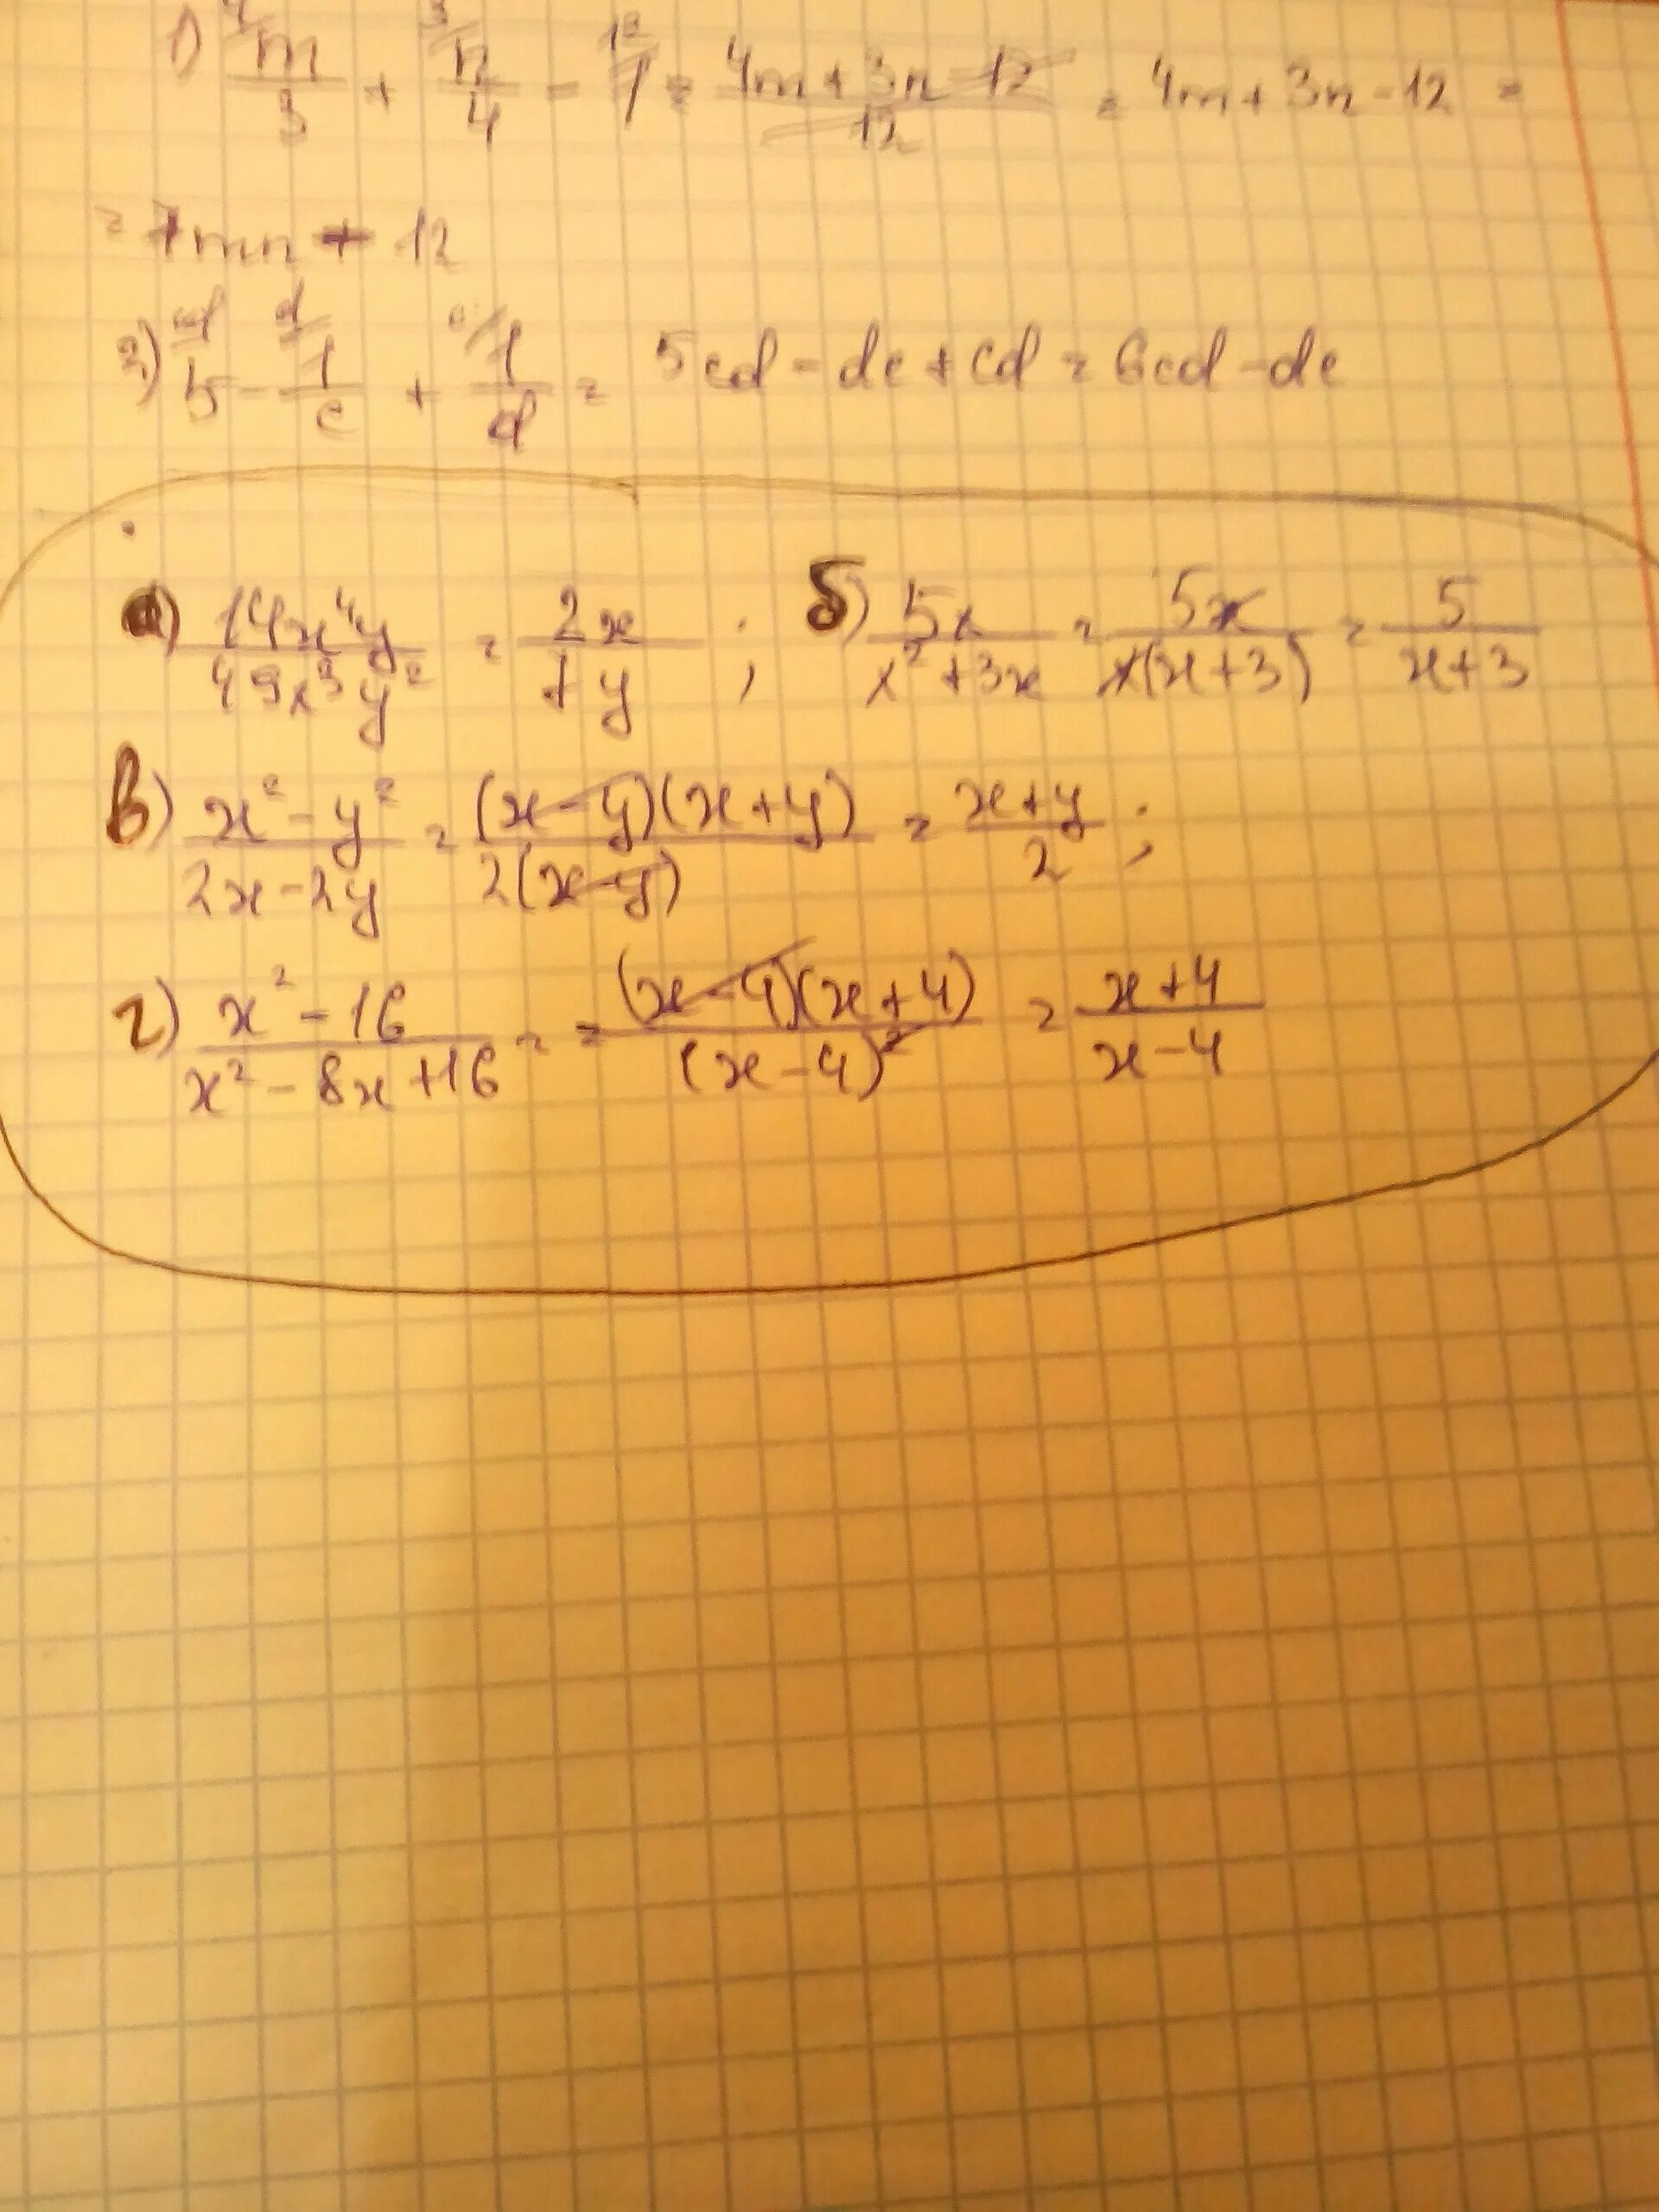 1) m/3 + n/4 - 1 = (4m + 3n - 12)/12 = 4m + 3n - 12 =
= 7mn + 12
2) 5 - 1/c + 1/d = 5cd - dc + cd = 6cd - dc
а) 14x⁴y/49x³y² = 2x/7y ; б) 5x/(x² + 3x) = 5x/(x(x+3)) = 5/(x+3)
в) (x² - y²)/(2x - 2y) = (x - y)(x + y)/(2(x - y)) = (x + y)/2 ;
г) (x² - 16)/(x² - 8x + 16) = = (x - 4)(x + 4)/(x - 4)² = (x + 4)/(x - 4)